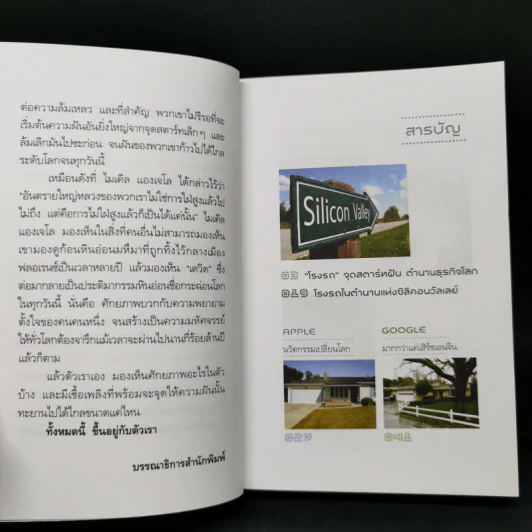 ต่อความล้มเหลว และที่สำคัญ พวกเขาไม่รีรอที่จะ
เริ่มต้นความฝันอันยิ่งใหญ่จากจุดสตาร์ทเล็กๆ และ
ล้มเลิกมันไปซะก่อน จนฝันของพวกเขาก้าวไปได้ไกล
ระดับโลกจนทุกวันนี้
เหมือนดังที่ ไมเคิล แองเจโล ได้กล่าวไว้ว่า
"อันตรายใหญ่หลวงของพวกเราไม่ใช่การใฝ่สูงแล้วไป
ไม่ถึง แต่คือการไม่ใฝ่สูงแล้วก็เป็นได้แค่นั้น" ไมเคิล
แองเจโล มองเห็นในสิ่งที่คนอื่นไม่สามารถมองเห็น
เขามองดูก้อนหินอ่อนมหึมาที่ถูกทิ้งไว้กลางเมือง
ฟลอเรนซ์เป็นเวลาหลายปี แล้วมองเห็น "เดวิด" ซึ่ง
ต่อมากลายเป็นประติมากรรมหินอ่อนชื่อกระฉ่อนโลก
ในทุกวันนี้ นั่นคือ ศักยภาพบวกกับความพยายาม
ตั้งใจของคนคนหนึ่ง จนสร้างเป็นความมหัศจรรย์
ให้ทั่วโลกต้องจารึกแม้เวลาจะผ่านไปนานกี่ร้อยล้านปี
แล้วก็ตาม
แล้วตัวเราเอง มองเห็นศักยภาพอะไรในตัว
บ้าง และมีเชื้อเพลิงที่พร้อมจะจุดให้ความฝันนั้น
ทะยานไปได้ไกลขนาดแค่ไหน
ทั้งหมดนี้ ขึ้นอยู่กับตัวเรา
บรรณาธิการสำนักพิมพ์
สารบัญ
Silicon Valley
"โรงรถ" จุดสตาร์ทฝัน ตำนานธุรกิจโลก
019 โรงรถในตำนานแห่งซิลิคอนวัลเลย์
APPLE
นวัตกรรมเปลี่ยนโลก
027
GOOGLE
มากกว่าแค่เสิร์ชเอนจิน
041